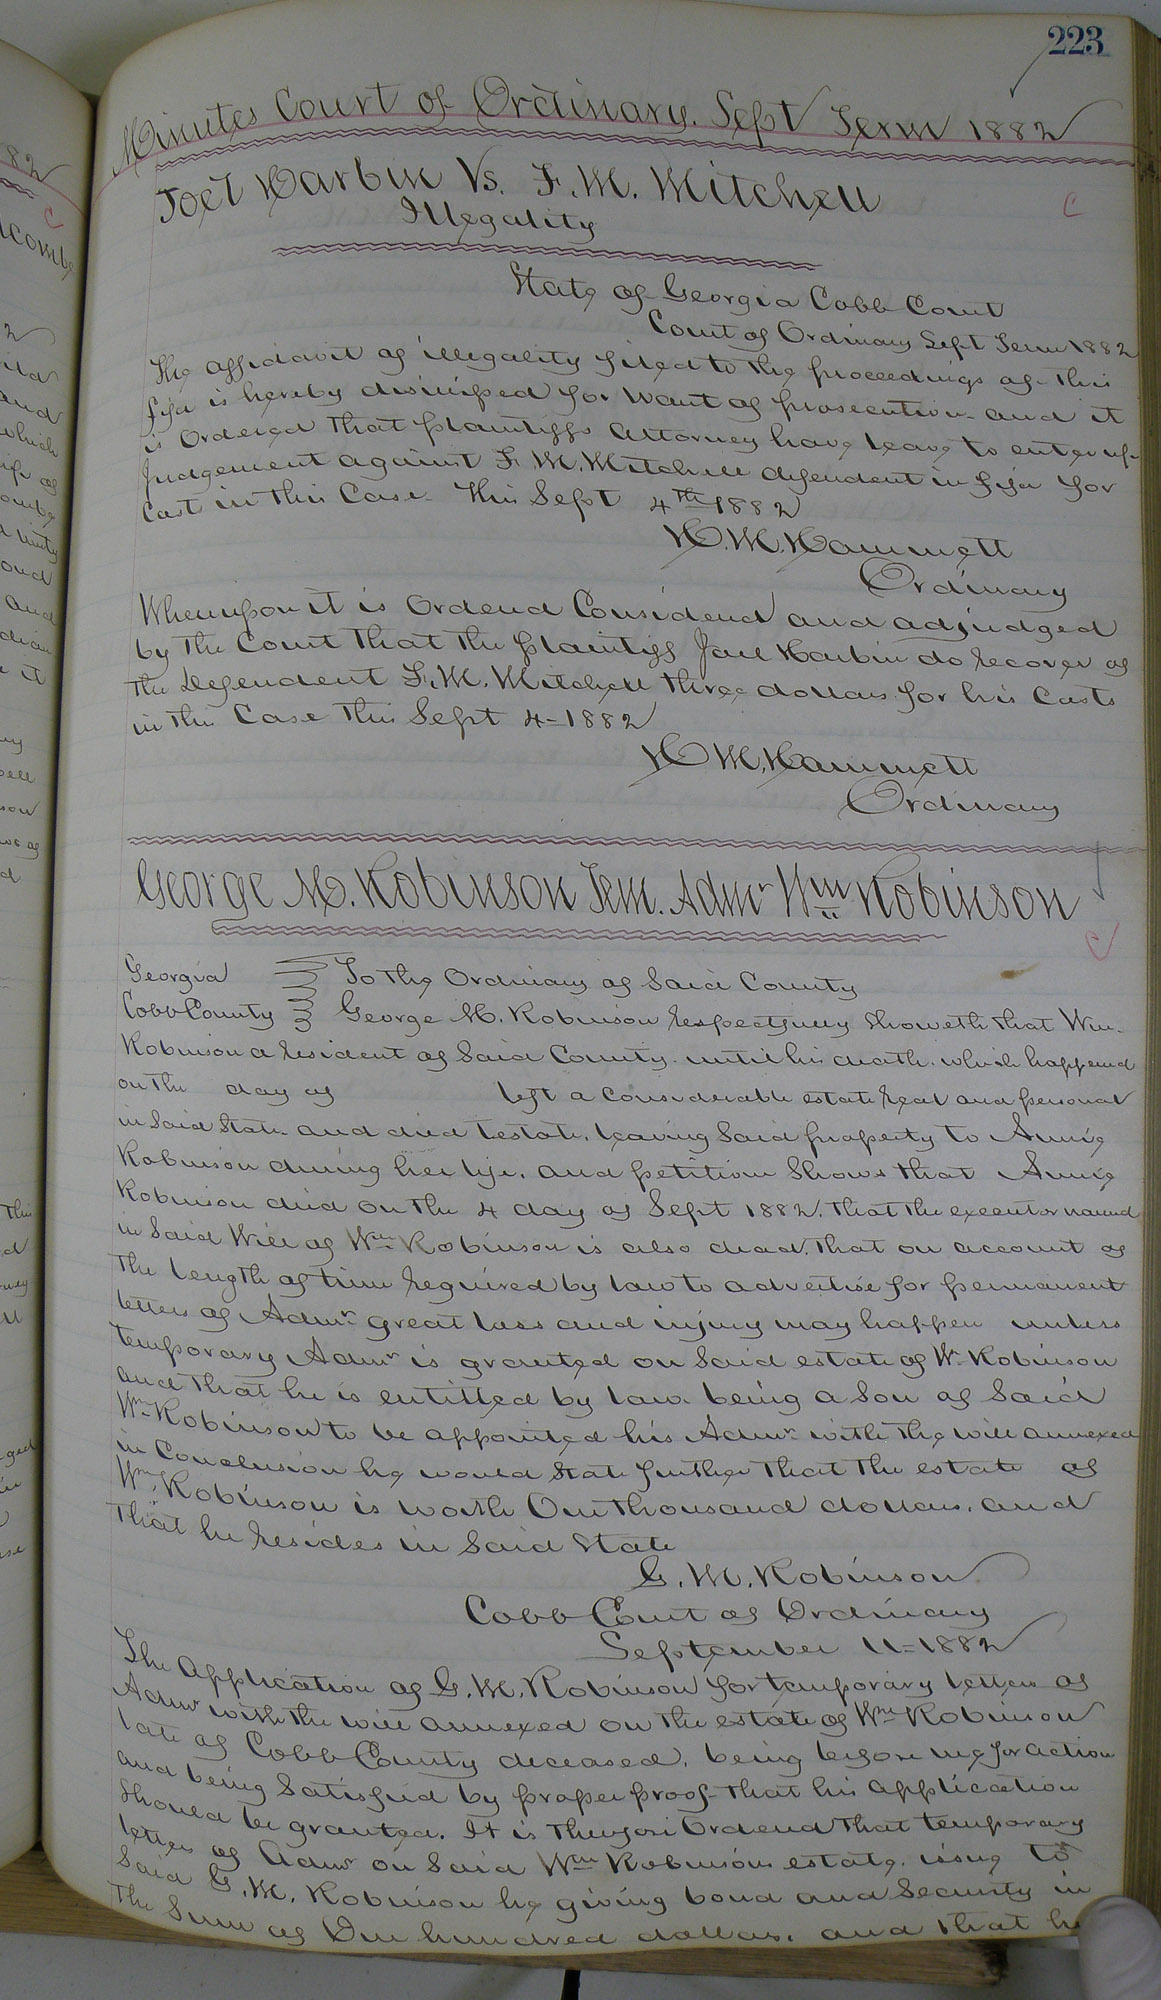 223
Minutes Court of Ordinary. Sept Term 1882
Joel Harbin Vs. F. M. Mitchell
Illegality
State of Georgia Cobb Court
Court of Ordinary Sept Term 1882
The affidavit of illegality filed to the proceedings of this
fifa is hereby dismissed for want of prosecution and it
is Ordered that plaintiffs Attorney have leave to enter up
Judgement against F. M. Mitchell defendent in fifa for
Cost in this Case. This Sept 4th 1882
H. M. Hammett
Ordinary
Whereupon it is Ordered Considered and adjudged
by the Court that the plaintiff Joel Harbin do recover of
the Defendent F. M. Mitchell three dollars for his Costs
in this Case This Sept 4-1882
H M. Hammett
Ordinary
George M. Robinson Tem. Admr Wm Robinson
Georgia To the Ordinary of Said County
Cobb County George M. Robinson respectfully showeth that Wm
Robinson a resident of Said County until his death. which happened
on the day of left a considerable estate real and personal
in Said State and died testate, leaving Said property to Annie
Robinson during her life, and petition shows that Annie
Robinson died on the 4 day of Sept 1882. that the executor named
in Said Will of Wm Robinson is also dead, that on account of
the length of time required by law to advertise for permanent
letters of Admr. great loss and injury may happen unless
temporary Admr is granted on Said estate of W. Robinson
and that he is entitled by law being a Son of Said
Wm Robinson to be appointed his Admr. with the will annexed
in Conclusion he would State further that the estate of
Wm. Robinson is worth One thousand dollars. and
that he resides in Said State
G. M. Robinson
Cobb Court of Ordinary
September 11-1882
The Application of G. M. Robinson for temporary letters of
Admr with the will annexed on the estate of Wm Robinson
late of Cobb County deceased, being before me for action
and being Satisfied by proper proof that his application
should be granted. It is Therefore Ordered that temporary
letters of Admr on Said Wm Robinsons estate issue to
Said G. M. Robinson he giving bond and Security in
the Sum of One hundred dollars. and that he